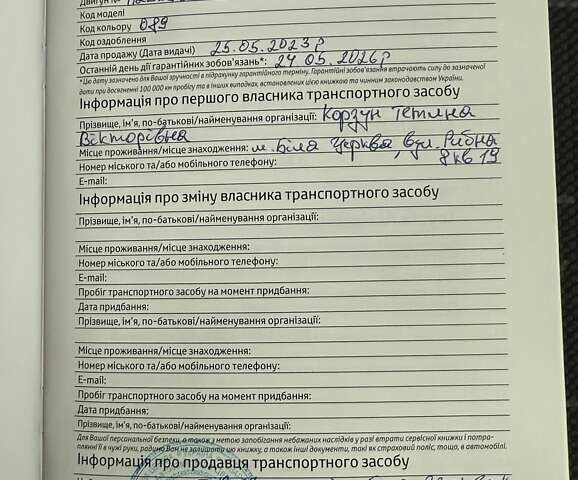 Двигун №
Код моделі
Код кольору 089
Код оздоблення
Дата продажу (Дата видачі) 25.05.2023р
Останній день дії гарантійних зобов'язань*: 24 05.2026р
*Цю дату зазначено для Вашої зручності в підрахунку гарантійного терміну. Гарантійні зобов'язання втрачають силу до зазначеної
дати при досягненні 100 000 км пробігу та в інших випадках, встановлених цією книжкою та чинним законодавством України.
Інформація про першого власника транспортного засобу
Прізвище, ім'я, по-батькові/найменування організації: Корзун Тетяна
Вікторівна
Місце проживання/місце знаходження: м. Біла Церква, вул. Рибна
Номер міського та/або мобільного телефону: 8 кв 19
E-mail:
Інформація про зміну власника транспортного засобу
Прізвище, ім'я, по-батькові/найменування організації:
Місце проживання/місце знаходження:
Номер міського та/або мобільного телефону:
E-mail:
Пробіг транспортного засобу на момент придбання:
Дата придбання:
Прізвище, ім'я, по-батькові/найменування організації:
Місце проживання/місце знаходження:
Номер міського та/або мобільного телефону:
E-mail:
Пробіг транспортного засобу на момент придбання:
Дата придбання:
Прізвище, ім'я, по-батькові/найменування організації:
Для Вашої персональної безпеки, а також з метою запобігання небажаних наслідків у разі втрати сервісної книжки і потра-
плянні її в чужі руки, радимо Вам не залишати цю книжку, а також інші документи, такі як страховий поліс, тощо, в автомобілі.
Інформація про продавця транспортного засобу